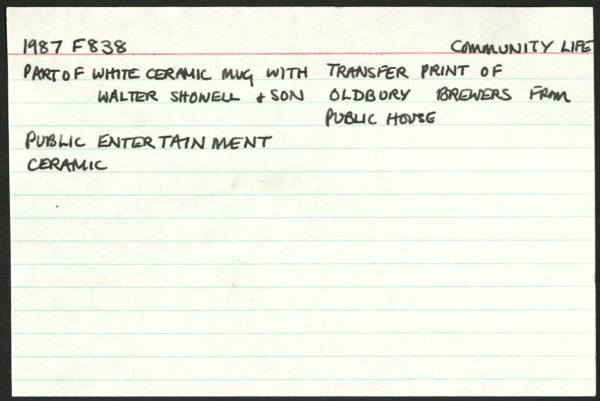 1987 F838 COMMUNITY LIFE
PART OF WHITE CERAMIC MUG WITH TRANSFER PRINT OF
WALTER SHOWELL & SON OLDBURY BREWERS FROM
PUBLIC HOUSE
PUBLIC ENTERTAINMENT
CERAMIC